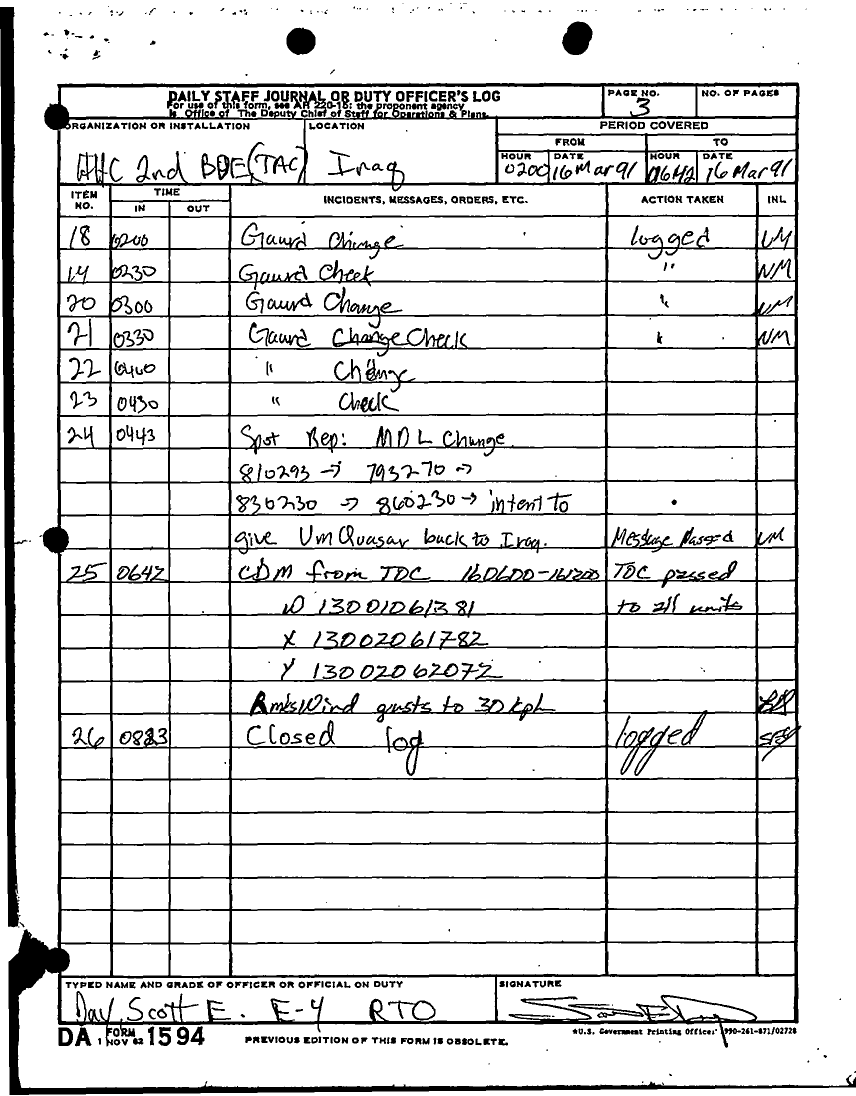 DAILY STAFF JOURNAL OR DUTY OFFICER'S LOG
For use of this form, see AR 220-15; the proponent agency
is Office of The Deputy Chief of Staff for Operations & Plans.
PAGE NO.
3
NO. OF PAGES
ORGANIZATION OR INSTALLATION
HHC 2nd BDE (TAC)
LOCATION
Iraq
PERIOD COVERED
FROM TO
HOUR DATE HOUR DATE
0200 16 Mar 91 0642 16 Mar 91
ITEM NO. TIME IN OUT INCIDENTS, MESSAGES, ORDERS, ETC. ACTION TAKEN INL
18 0200 Gaurd Change logged
19 0230 Gaurd Check " NM
20 0300 Gaurd Change " NM
21 0330 Gaurd Change Check " NM
22 0400 " Change
23 0430 " Check
24 0443 Spot Rep: MDL Change
810293 → 793270 →
830230 → 860230 → intent to
give Um Quasar back to Iraq. Message Passed
25 0642 CDM from TOC 160600-161200 TOC passed
W 13001061381 to all units
X 13002061782
Y 13002062072
Rmks Wind gusts to 30 kph
26 Closed log logged
TYPED NAME AND GRADE OF OFFICER OR OFFICIAL ON DUTY
Day, Scott E. E-4 RTO
SIGNATURE
DA FORM 1 NOV 62 1594
PREVIOUS EDITION OF THIS FORM IS OBSOLETE.
*U.S. Government Printing Office: 1990-261-871/02728